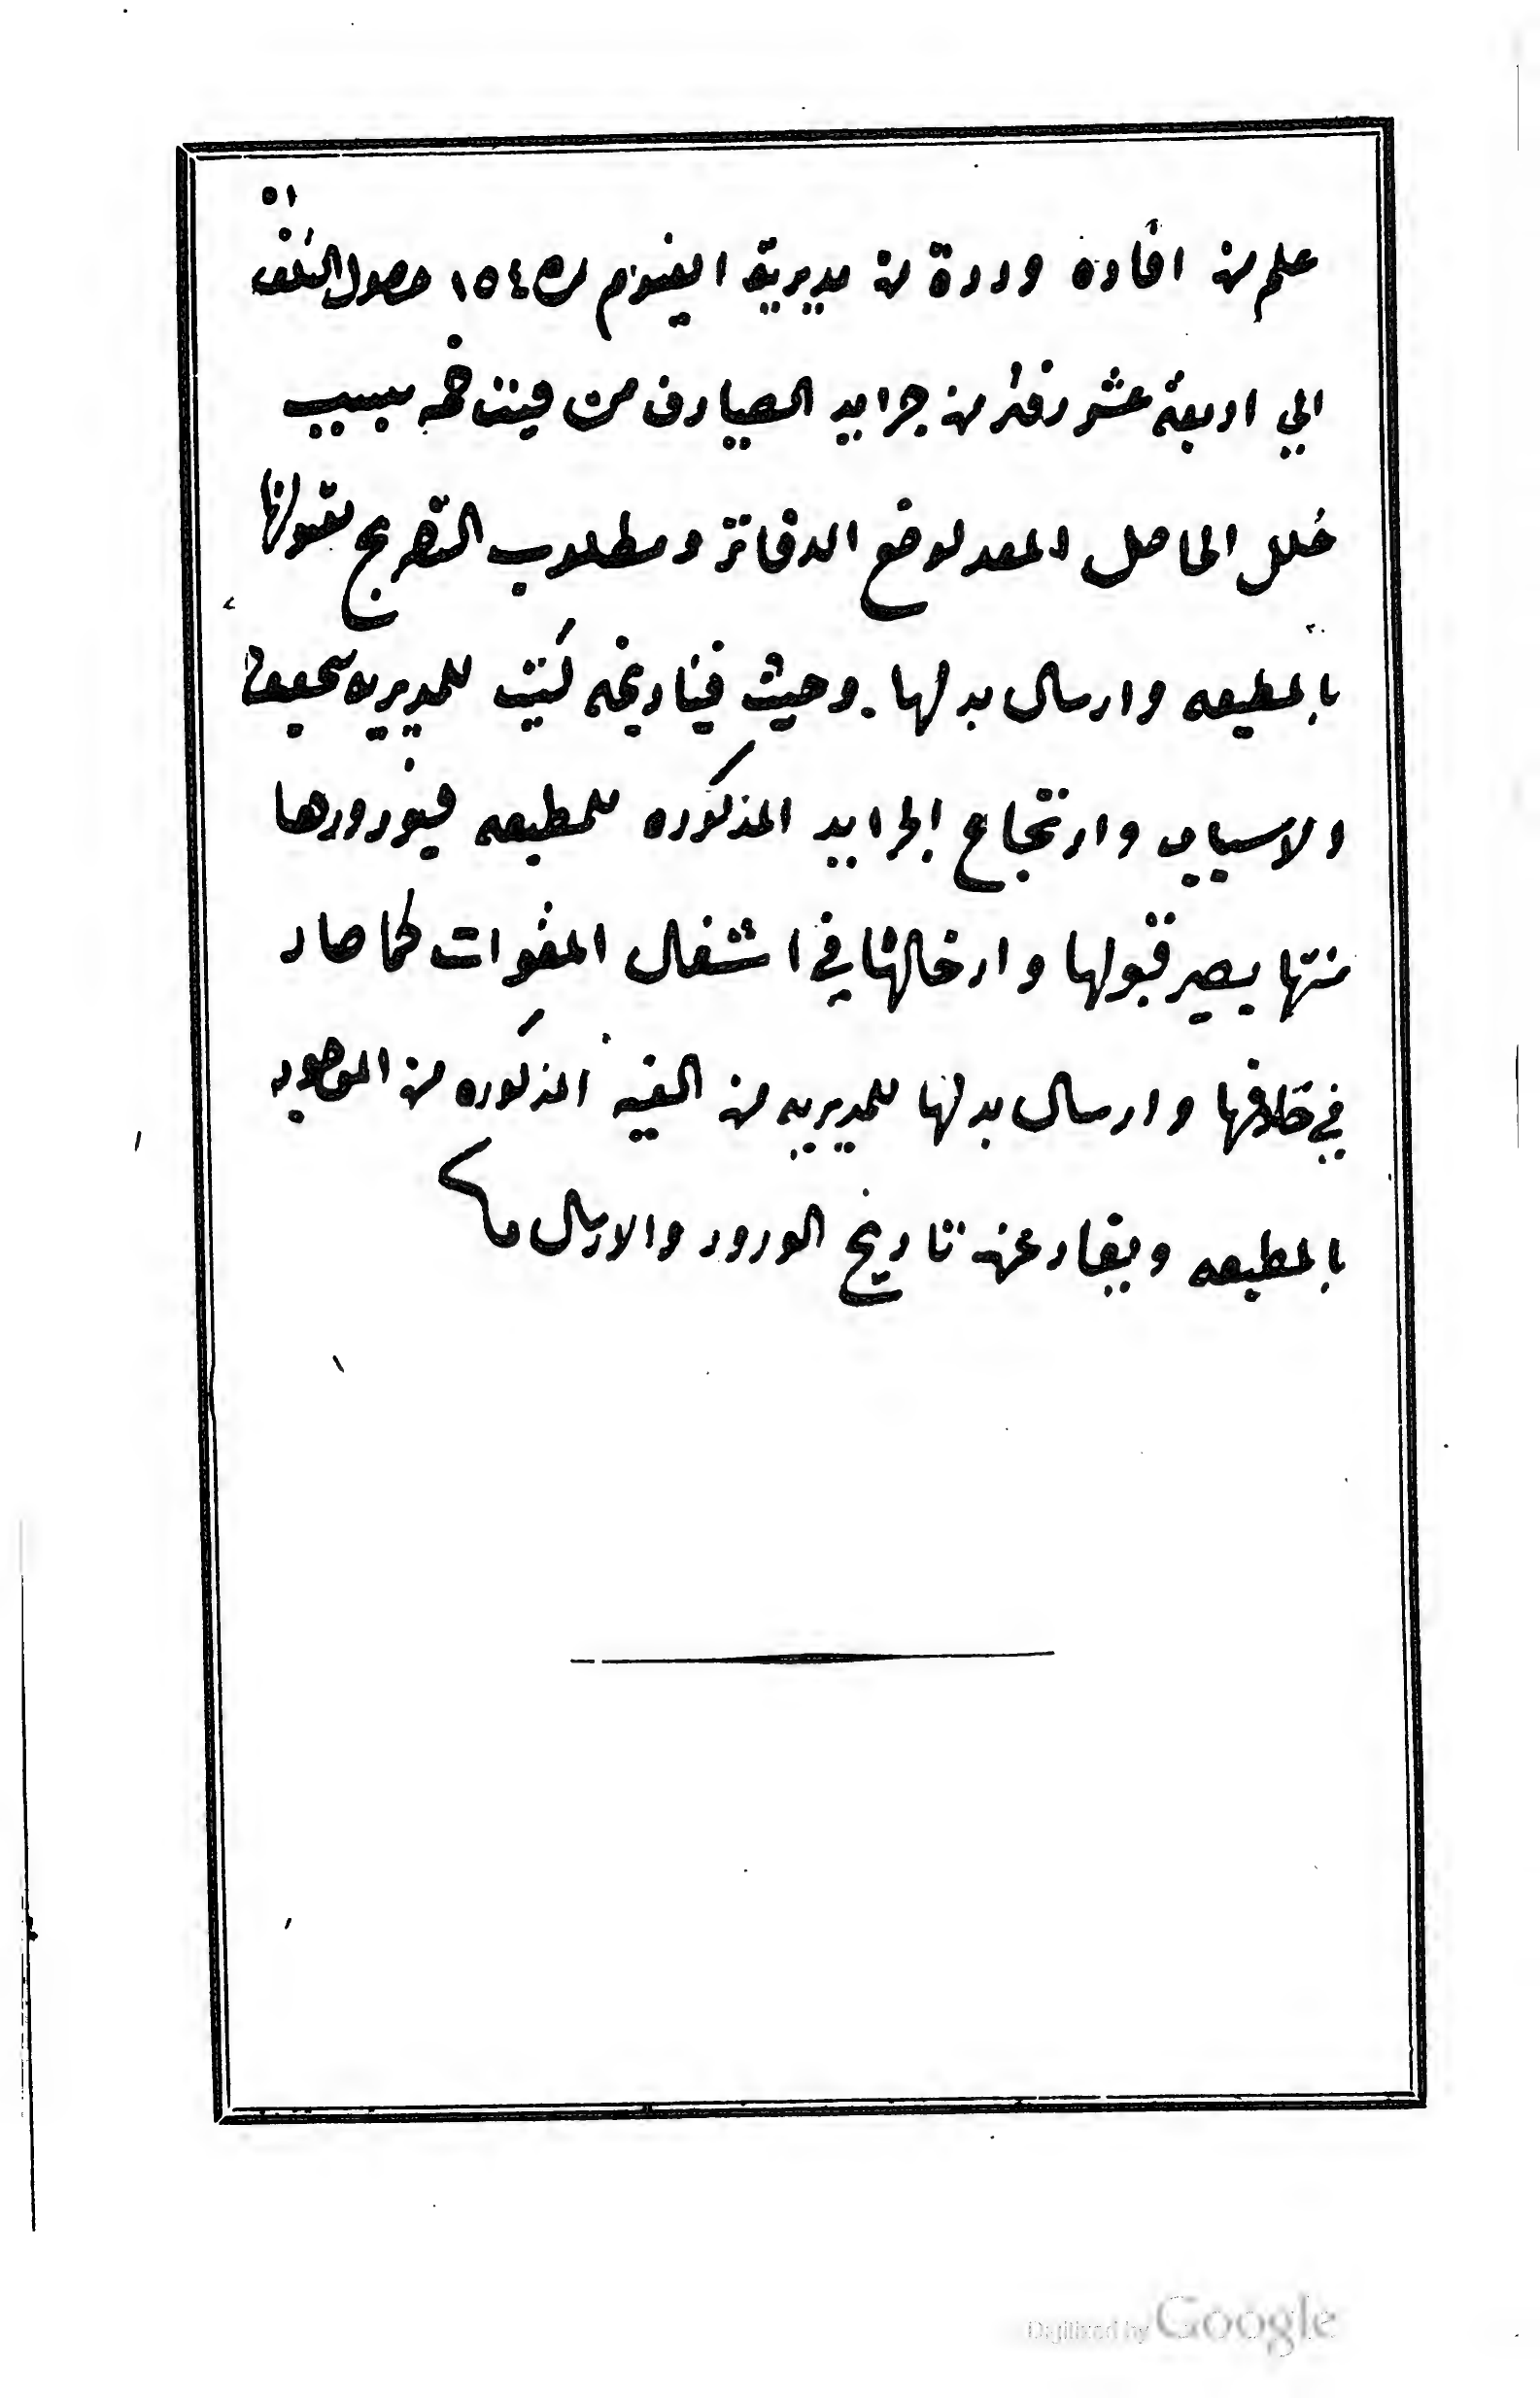 ٥١
علم من افاده وردة من مديرية الفيوم ١٥٤ حصول التلف
الي اربعة عشر دفتر من جرايد الصيارف من فيئت خمه بسبب
خلل الحاصل المعد لوضع الدفاتر ومطلوب التصريح بقبولها
بالمطبعه وارسال بدلها. وحيث فيتاريخه كتب للمديريه تحقيق
الاسباب وارتجاع الجرايد المذكوره للمطبعه فبورودها
منها يصير قبولها وادخالها في اشغال المقوات كما صار
في خلافها وارسال بدلها للمديريه من الفيه المذكوره من الموجود
بالمطبعه ويفاد عن تاريخ الورود والارسال
Digitized by Google